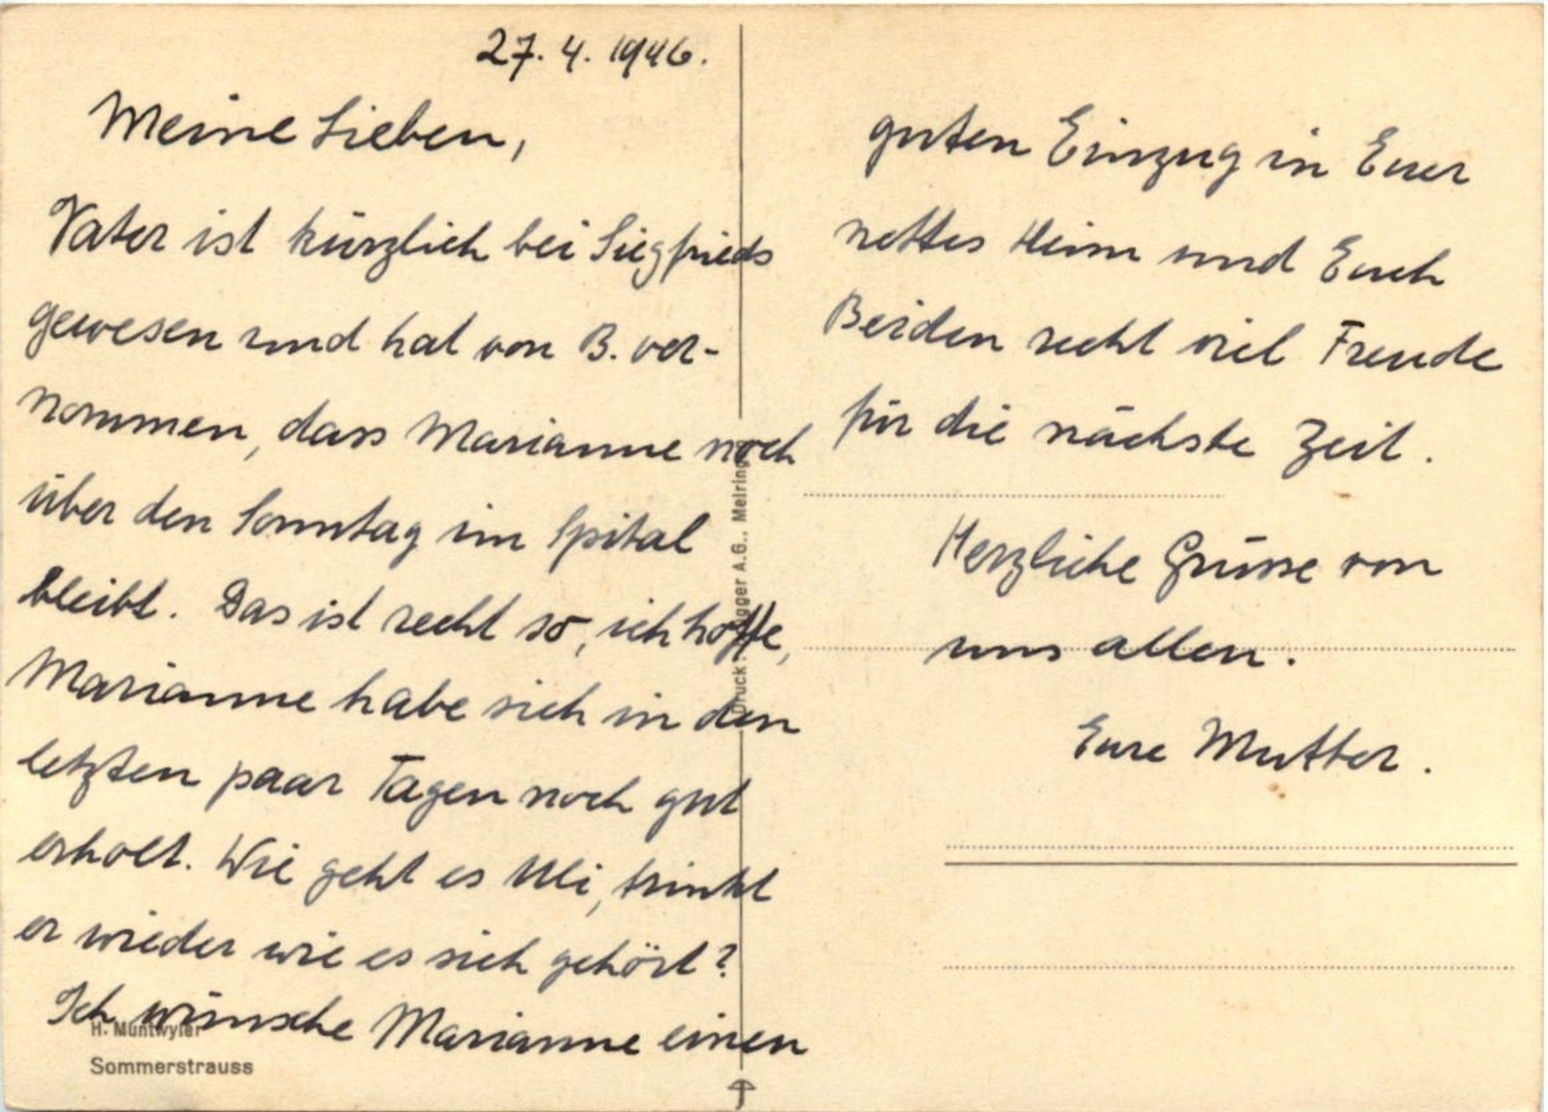 27. 4. 1946.
Meine Lieben,
Vater ist kürzlich bei Siegfrieds
gewesen und hat von B. ver-
nommen, dass Marianne noch
über den Sonntag im Spital
bleibt. Das ist recht so, ich hoffe,
Marianne habe sich in den
letzten paar Tagen noch gut
erholt. Wie geht es Ueli, trinkt
er wieder wie es sich gehört?
Ich wünsche Marianne einen
guten Einzug in Euer
nettes Heim und Euch
Beiden recht viel Freude
für die nächste Zeit.
Herzliche Grüsse von
uns allen.
Eure Mutter.
H. Muntwyler
Sommerstrauss
Druck: A.G., Meiringen